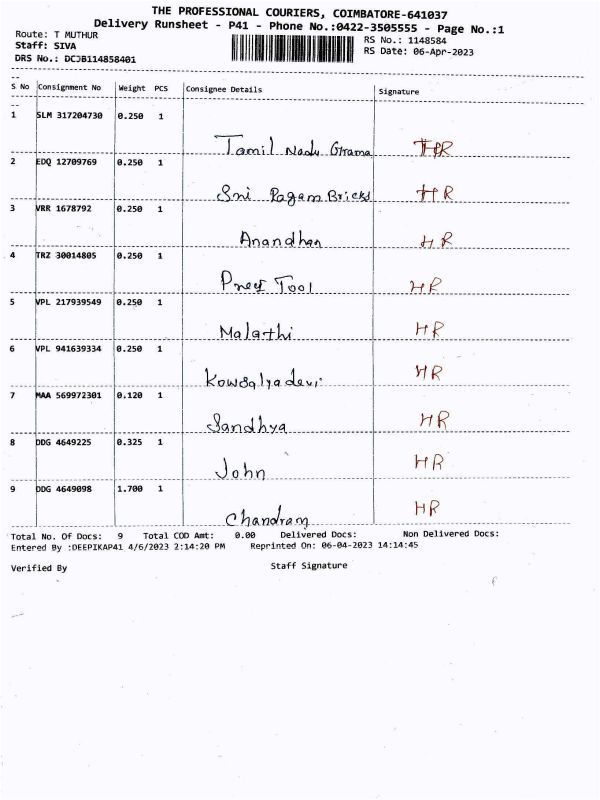 THE PROFESSIONAL COURIERS, COIMBATORE-641037
Delivery Runsheet - P41 - Phone No.:0422-3505555 - Page No.:1
Route: T MUTHUR RS No.: 1148584
Staff: SIVA RS Date: 06-Apr-2023
DRS No.: DCJB114858401
S No Consignment No Weight PCS Consignee Details Signature
1 SLM 317204730 0.250 1
Tamil Nadu Grama HR
2 EDQ 12709769 0.250 1
Sri Ragam Bricks HR
3 VRR 1678792 0.250 1
Anandhan HR
4 TRZ 30014805 0.250 1
Preet Tool HR
5 VPL 217939549 0.250 1
Malathi HR
6 VPL 941639334 0.250 1
Kowsalyadevi HR
7 MAA 569972301 0.120 1
Sandhya HR
8 DDG 4649225 0.325 1
John HR
9 DDG 4649098 1.700 1
Chandram HR
Total No. Of Docs: 9 Total COD Amt: 0.00 Delivered Docs: Non Delivered Docs:
Entered By :DEEPIKAP41 4/6/2023 2:14:20 PM Reprinted On: 06-04-2023 14:14:45
Verified By Staff Signature